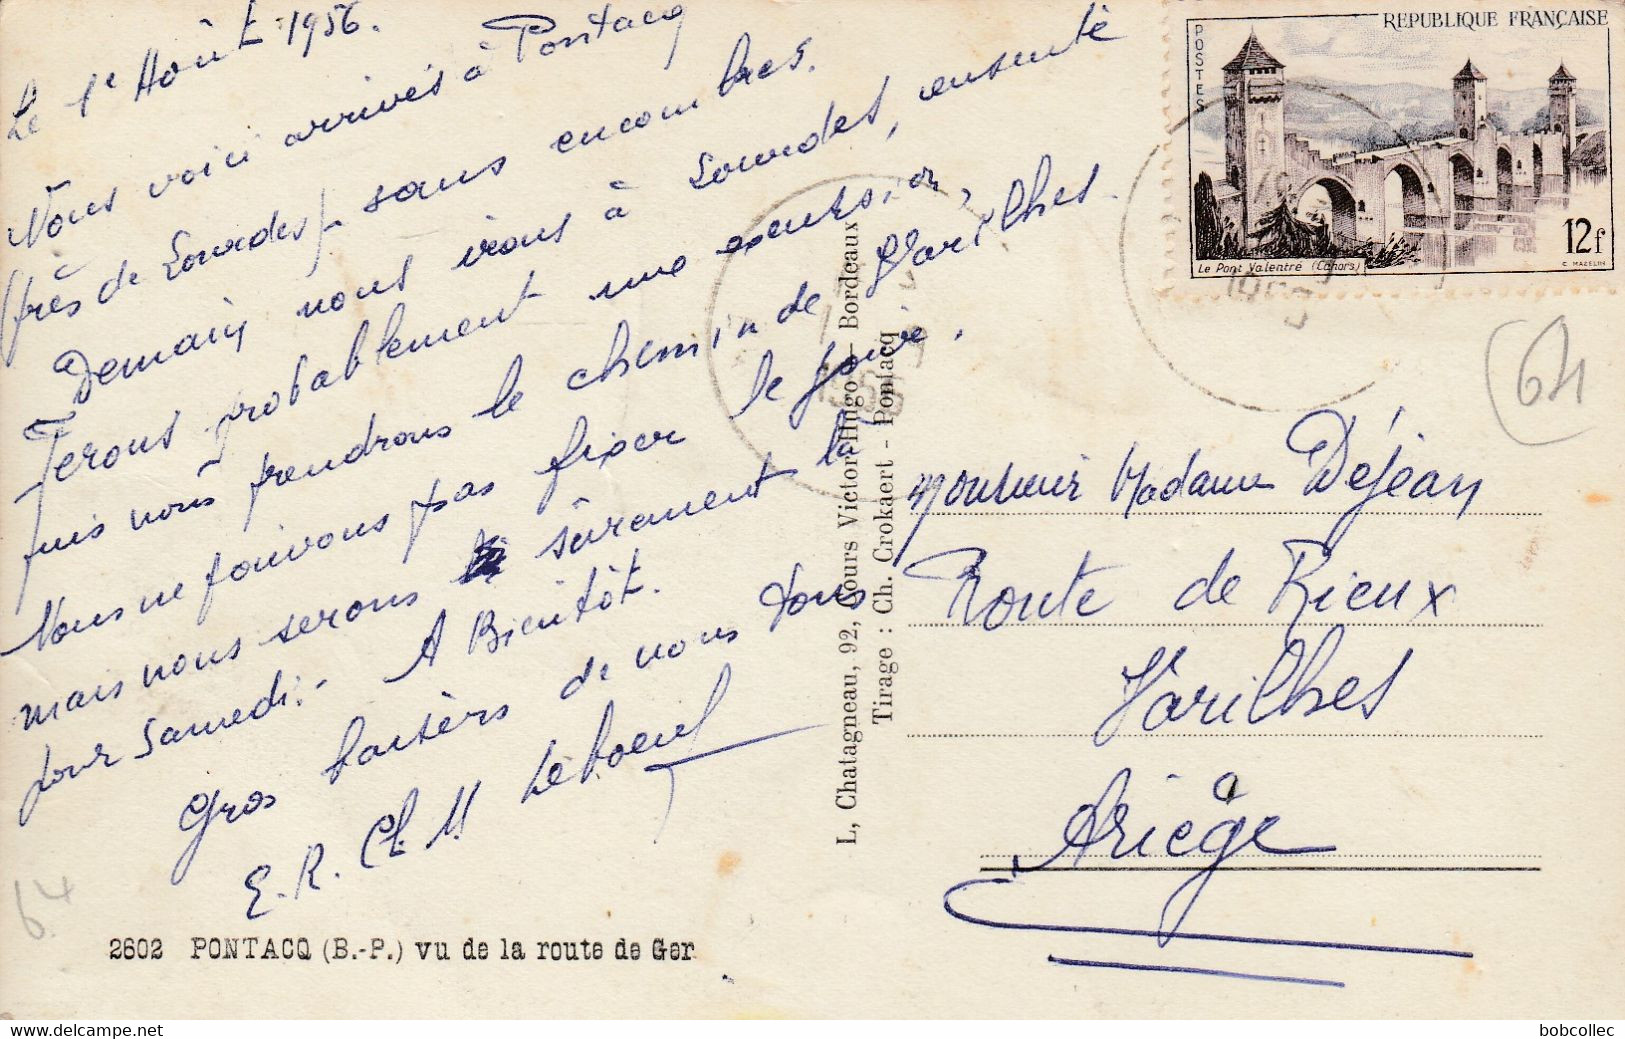 Le 1e Août 1956.
Nous voici arrivés à Pontacq
(près de Lourdes) sans encombres.
Demain nous irons à Lourdes, ensuite
ferons probablement une excursion,
puis nous prendrons le chemin de Varilhes.
Nous ne pouvons pas fixer le jour,
mais nous serons sûrement là
pour Samedi. - A Bientôt.
Gros baisers de nous tous
E. R. Ch. M Leboeuf
64
2602 PONTACQ (B.-P.) vu de la route de Ger
L, Chatagneau, 92, Cours Victor-Hugo - Bordeaux
Tirage : Ch. Crokaert - Pontacq
REPUBLIQUE FRANÇAISE
POSTES
12f
Le Pont Valentré (Cahors)
C. MAZELIN
(64
Monsieur Madame Déjean
Route de Rieux
Varilhes
Ariège
bobcollec